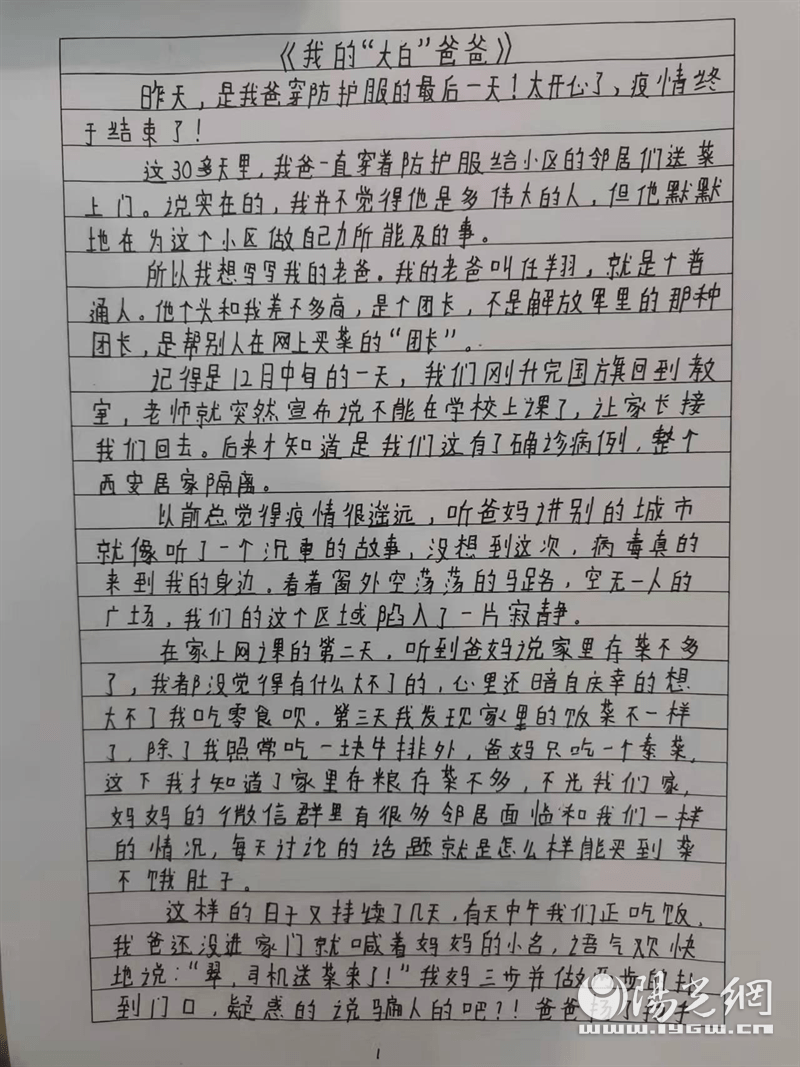 《我的“大白”爸爸》
昨天，是我爸穿防护服的最后一天！太开心了，疫情终
于结束了！
这30多天里，我爸一直穿着防护服给小区的邻居们送菜
上门。说实在的，我并不觉得他是多伟大的人，但他默默
地在为这个小区做自己力所能及的事。
所以我想写写我的老爸。我的老爸叫任翔，就是个普
通人。他个头和我差不多高，是个团长，不是解放军里的那种
团长，是帮别人在网上买菜的“团长”。
记得是12月中旬的一天，我们刚升完国旗回到教
室，老师就突然宣布说不能在学校上课了，让家长接
我们回去。后来才知道是我们这有了确诊病例，整个
西安居家隔离。
以前总觉得疫情很遥远，听爸妈讲别的城市
就像听了一个沉重的故事，没想到这次，病毒真的
来到我的身边。看着窗外空荡荡的马路，空无一人的
广场，我们的这个区域陷入了一片寂静。
在家上网课的第二天，听到爸妈说家里存菜不多
了，我都没觉得有什么大不了的，心里还暗自庆幸的想
大不了我吃零食呗。第三天我发现家里的饭菜不一样
了，除了我照常吃一块牛排外，爸妈只吃一个素菜，
这下我才知道了家里存粮存菜不多，不光我们家，
妈妈的微信群里有很多邻居面临和我们一样
的情况，每天讨论的话题就是怎么样能买到菜
不饿肚子。
这样的日子又持续了几天，有天中午我们正吃饭，
我爸还没进家门就喊着妈妈的小名，语气欢快
地说：“翠，司机送菜来了！”我妈三步并做两步的
到门口，疑惑的说骗人的吧？！爸爸
1
陽光網
www.iygw.cn